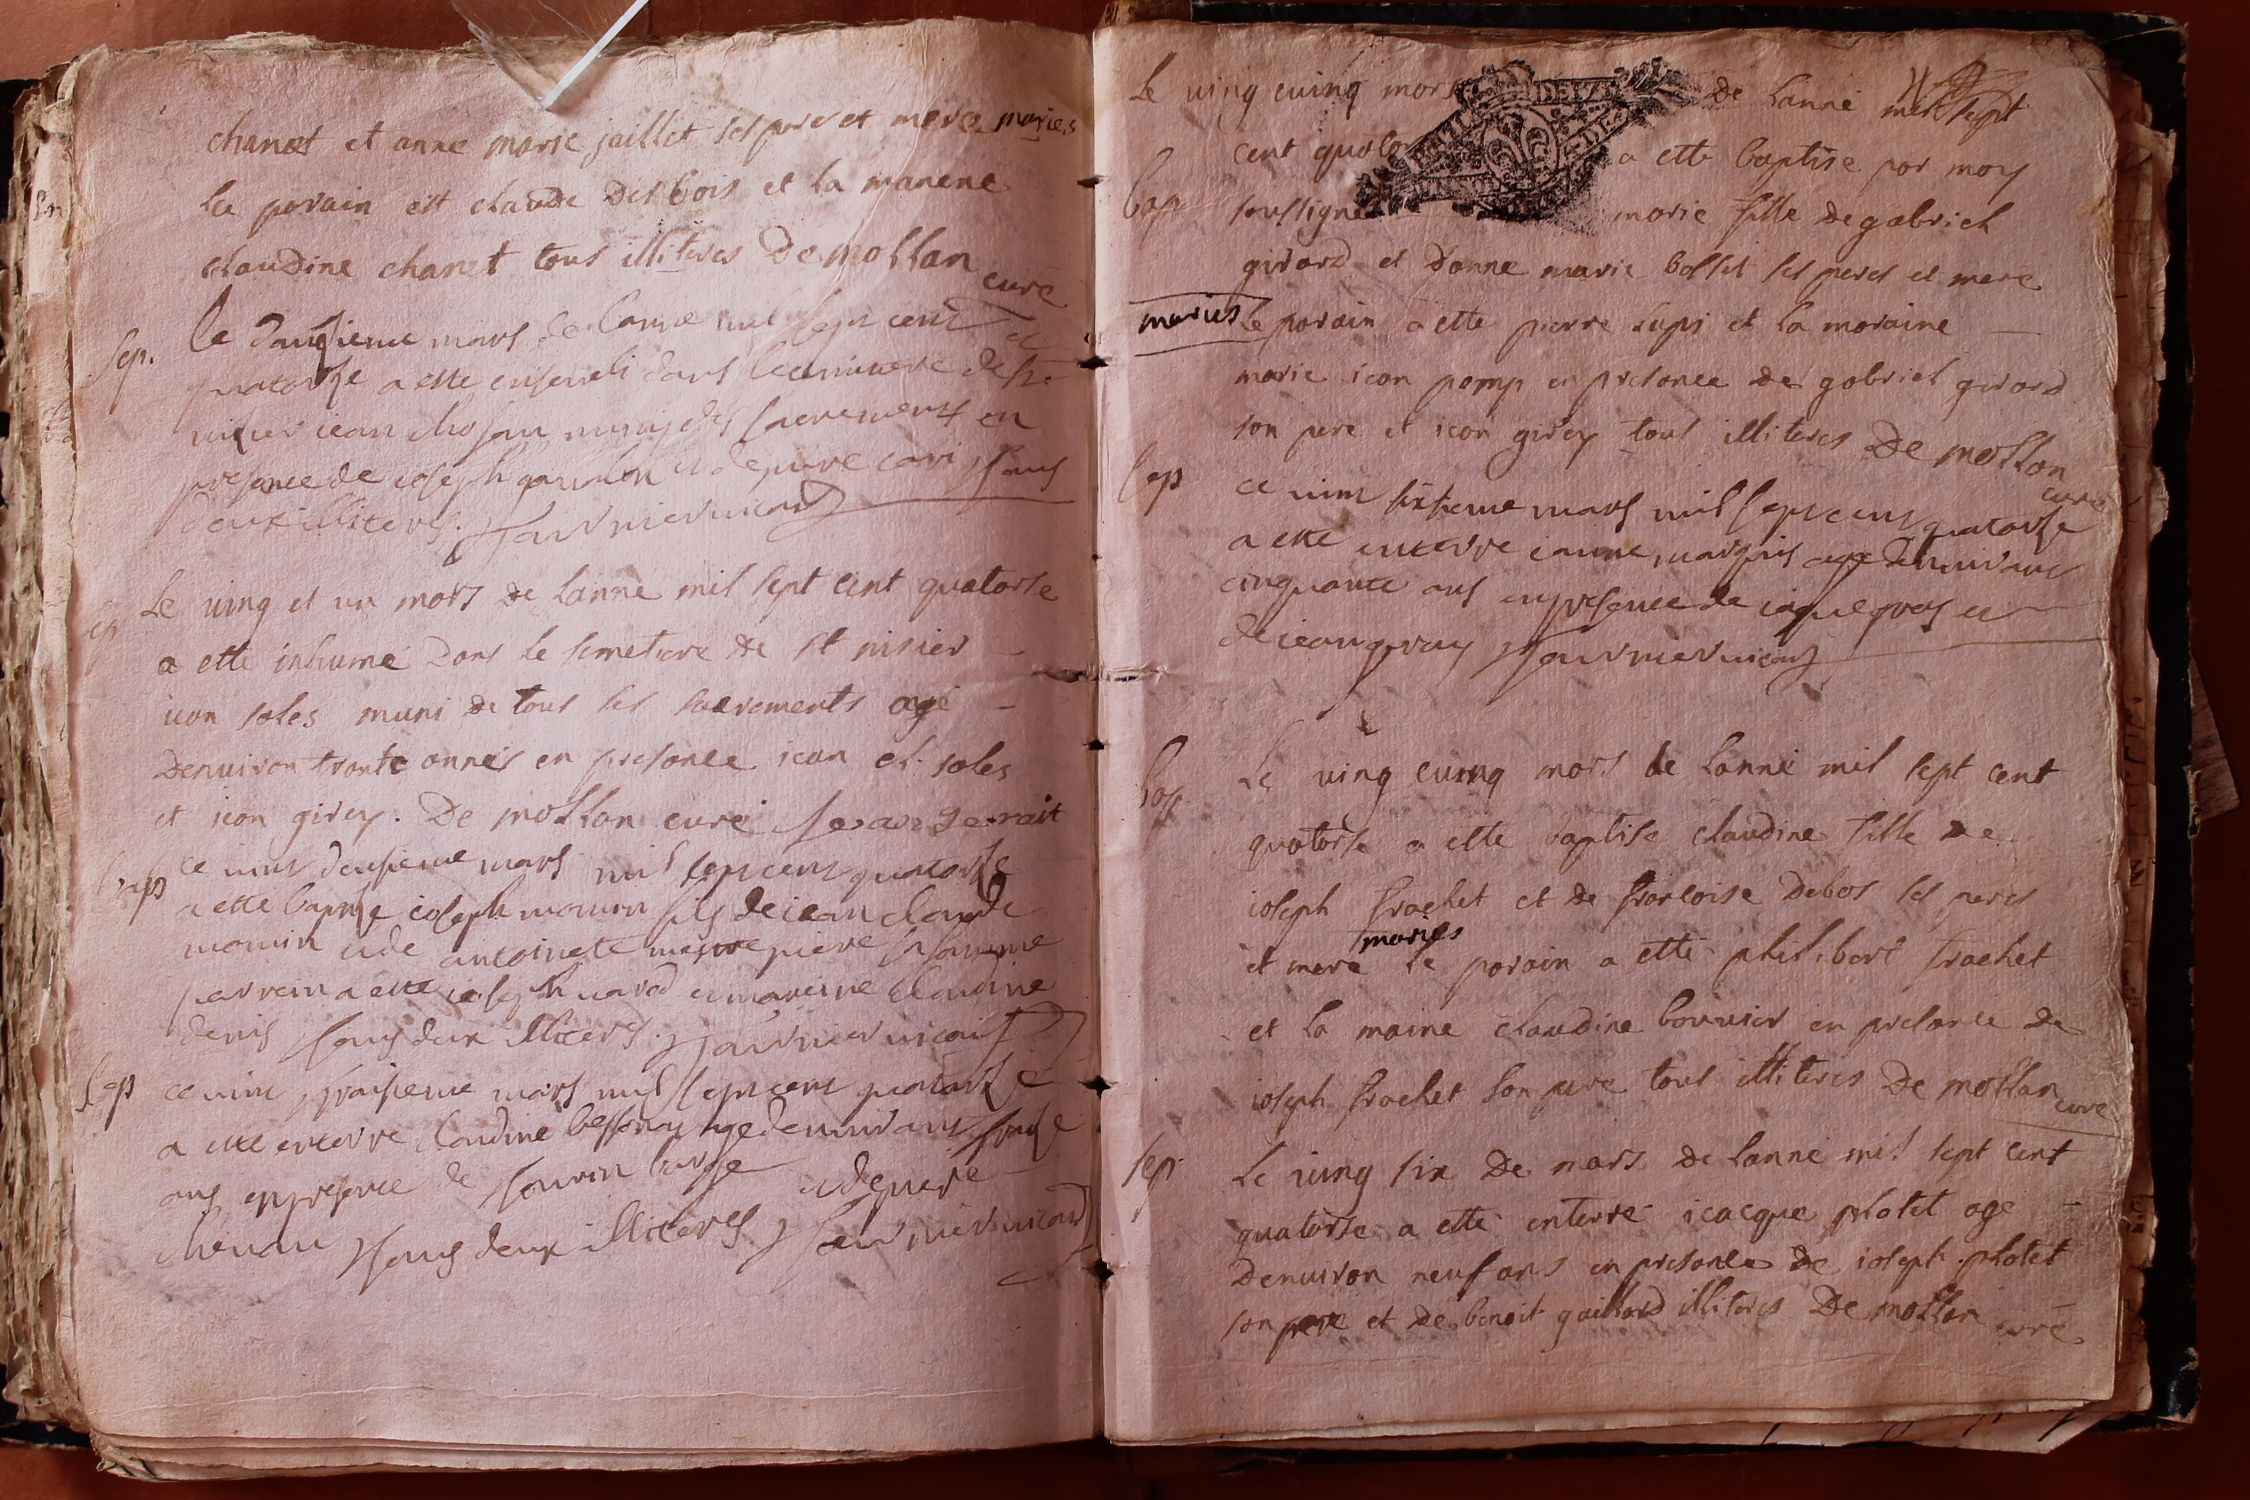 chanet et anne marie jaillet ses pere et mere maries
le parain est claude desbois et la marene
claudine chanet tous illiteres De mollan curé
Sep. le mars de lanne mil sept cent
quatorse a este enseveli dans le cimitiere de St
nisier iean munis des sacrements en
presence de ioseph et de piere tous
deux illiteres. favrnier vicair
Sep Le ving et un mars de lanne mil sept cent quatorse
a ette inhumé dans le semetiere de st nisier
ian soles muni de tous ses sacrements age
denuiron trante annes en presance ican soles
et ican girey. De mollan curé
bap ce vint deusieme mars mil sept cent quatorse
a ette baptise ioseph monin fils de iean claude
monin et de antoinete sa famme
parrein a ette ioseph et mareine claudine
denis tous deux illiteres. favrnier vicair
Sep ce vint troisieme mars mil sept cent quatorse
a ette enterre claudine bessonay age denviron trense
ans en presence de et de piere
tous deux illiteres favrnier vicair
Le ving cuinq mars de lanné mil sept
cent quator a ette baptise par moy
Bap soussigné marie fille de gabriel
girard et danne marie bosset ses peres et mere
maries le parain a ette pierre supi et la maraine
marie ican pomp en presance de gabriel girard
son pere et ican girey tous illiteres De mollan curé
Sep ce vint sixieme mars mil sept cent quatorse
a ette enterre ianne marquis age denviron
cinquante ans en presence de iaque gray et
de iean gray favrnier vicair
Bap Le ving cuinq mars de lanné mil sept cent
quatorse a ette baptise claudine fille de
ioseph frachet et de francoise debos ses peres
et mere maries le parain a ette philibert frachet
et la maine claudine bouvier en presance de
ioseph frachet son pere tous illiteres De mollan curé
Sep. Le ving six de mars de lanné mil sept cent
quatorse a ette enterré icacque platet age
Denuiron neuf ans en presance de ioseph platet
son pere et de benoit gaillard illiteres De mollan curé